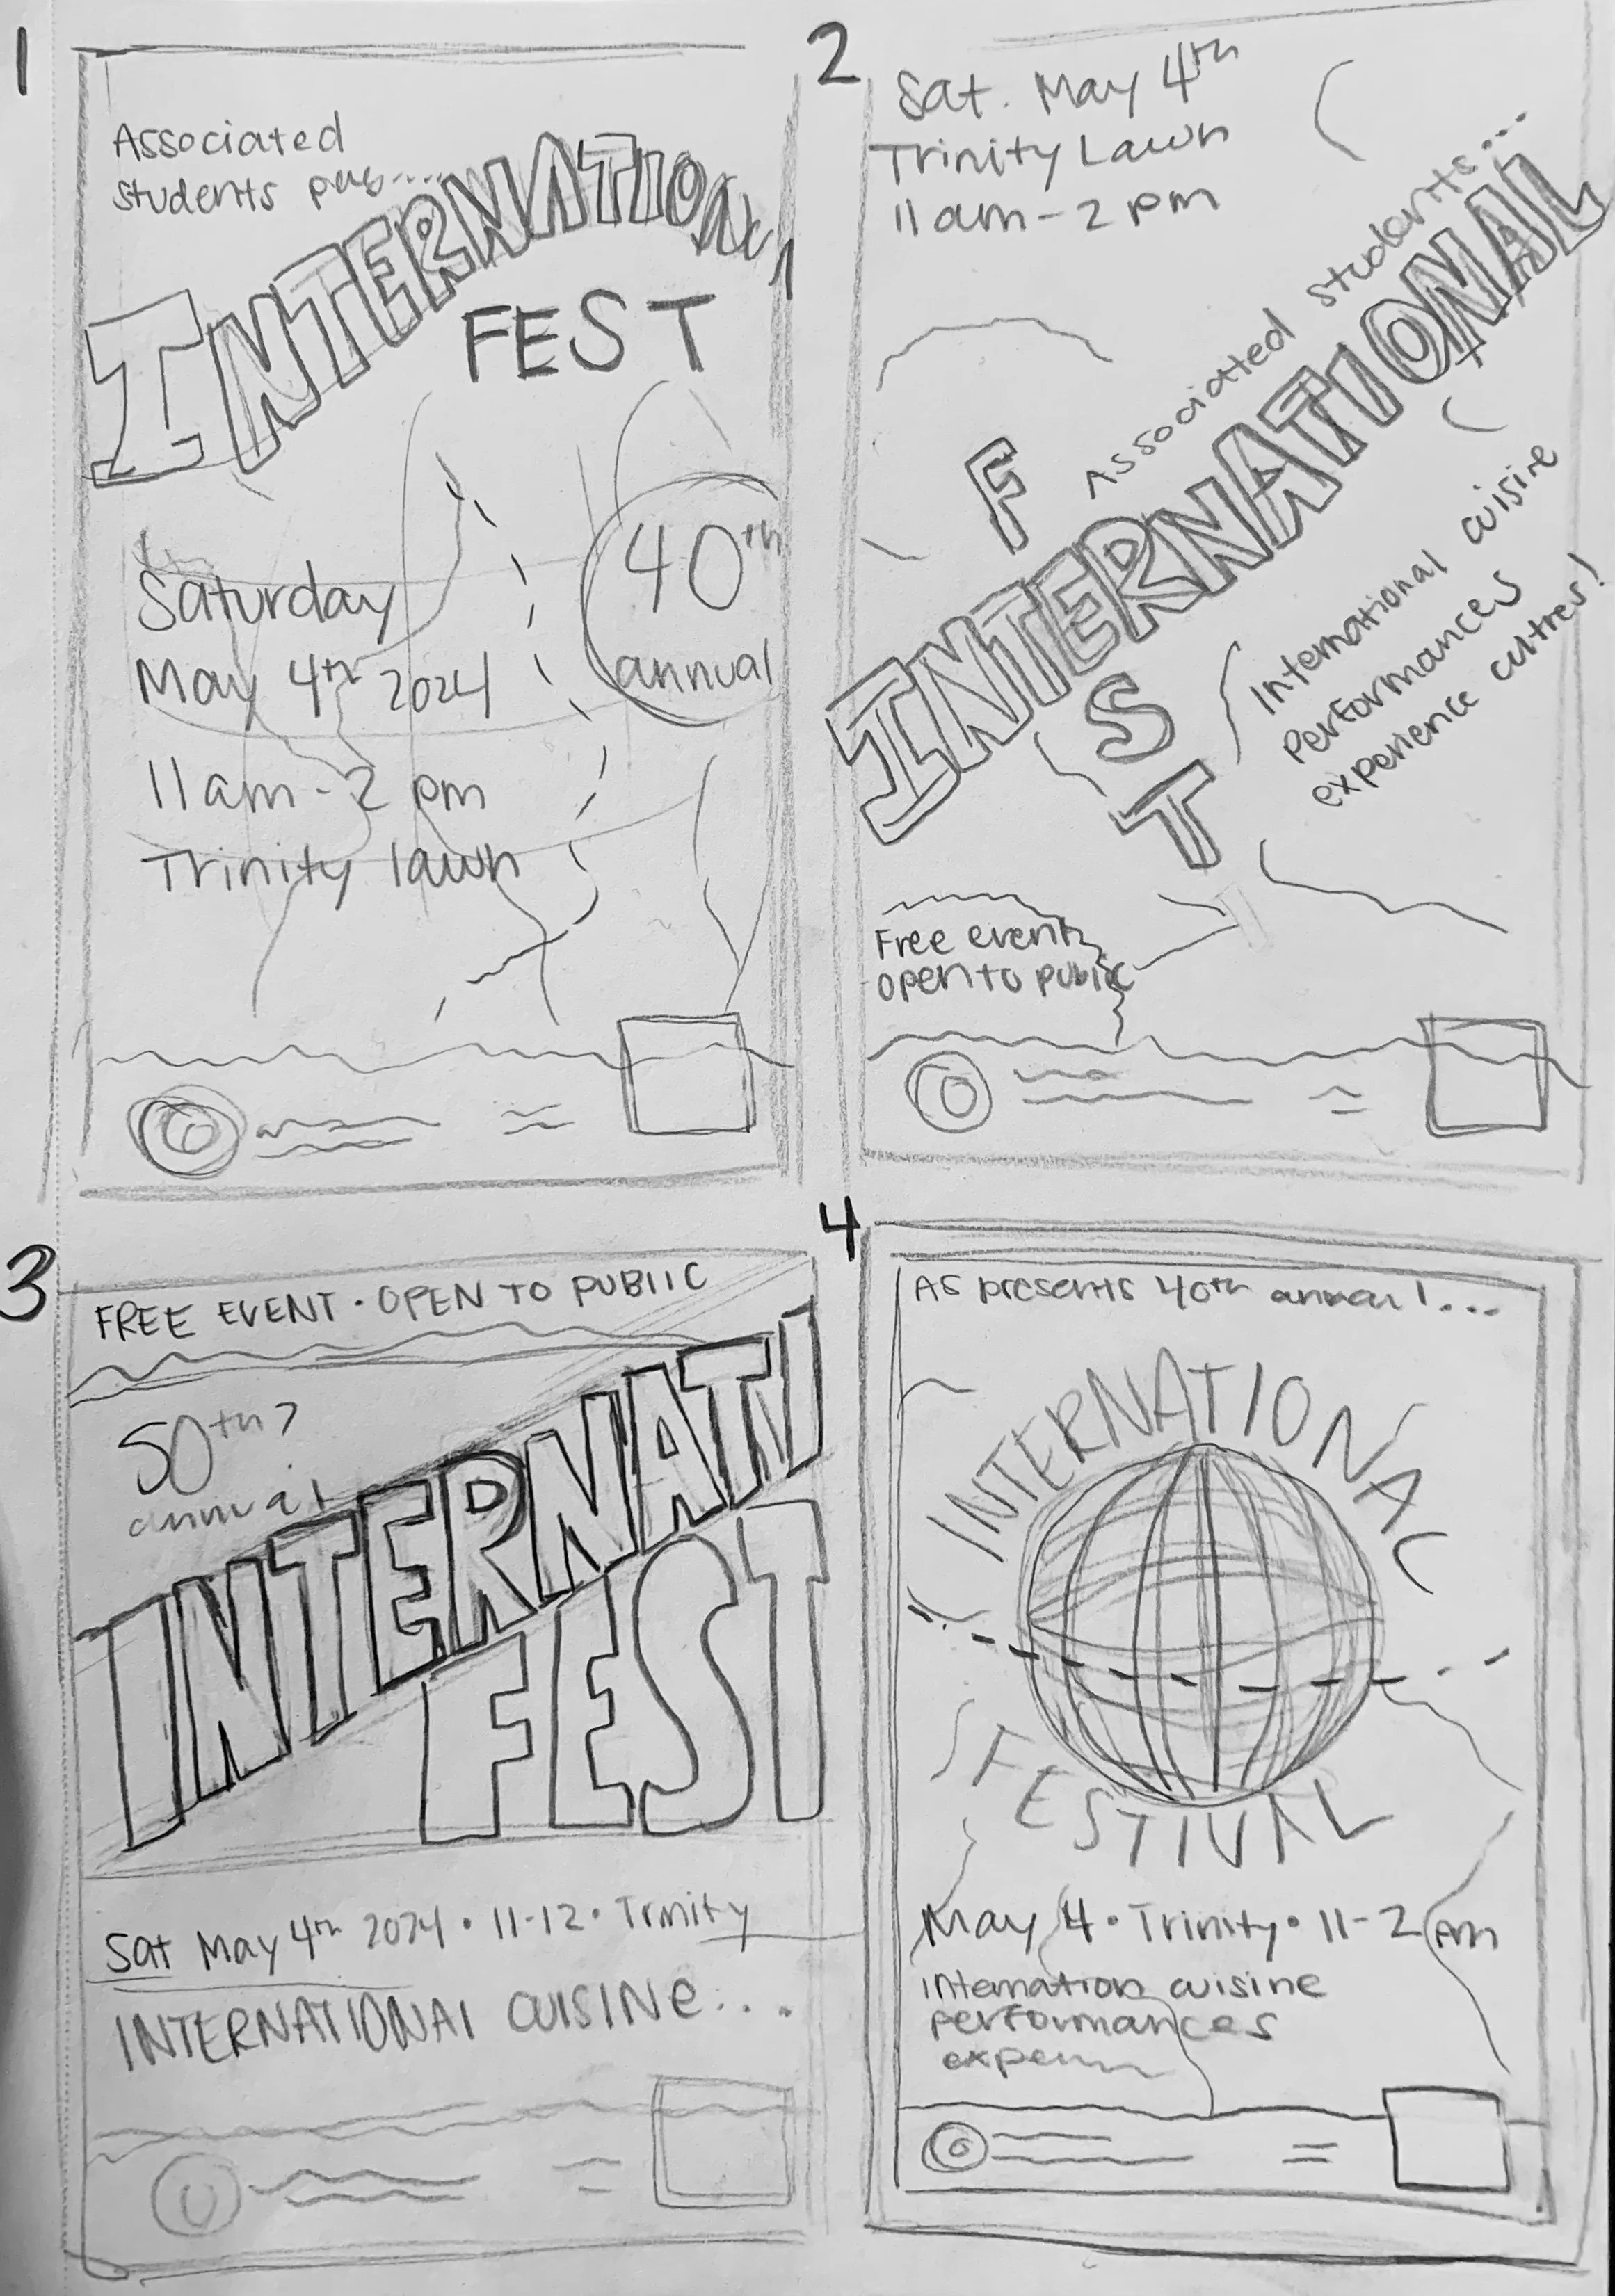 1
Associated
students
INTERNATIONAL
FEST
40th
annual
Saturday
May 4th 2024
11am-2 pm
Trinity lawn
2
Sat. May 4th
Trinity Lawn
11am-2pm
Associated students...
F
INTERNATIONAL
S
T
International cuisine
Performances
experience cultres!
Free event
open to public
3
FREE EVENT · OPEN TO PUBlIC
50th?
annual
INTERNATI
FEST
Sat May 4th 2024 · 11-12 · Trinity
INTERNATIONAl CUISINe...
4
AS presents 40th annual...
INTERNATIONAL
FESTIVAL
May 4 · Trinity · 11-2 pm
Internation cuisine
performances